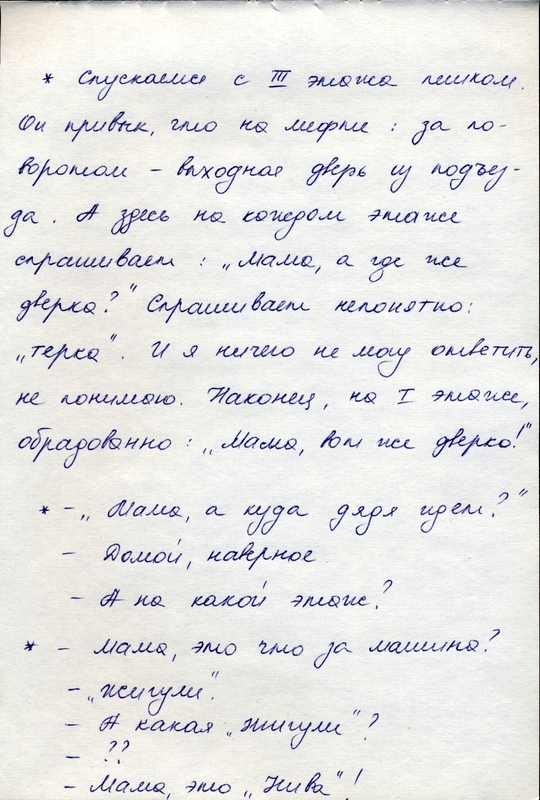 * Спускаемся с III этажа пешком.
Он привык, что на лифте : за по-
воротом – выходная дверь из подъез-
да. А здесь на каждом этаже
спрашивает : „Мама, а где же
дверка?" Спрашивает непонятно:
„терка". И я ничего не могу ответить,
не понимаю. Наконец, на I этаже,
обрадованно : „Мама, вот же дверка!"
* – „Мама, а куда дядя идет?"
– Домой, наверное
– А на какой этаж?
* – Мама, это что за машина?
– „Жигули".
– А какая „Жигули"?
– ??
– Мама, это „Нива"!